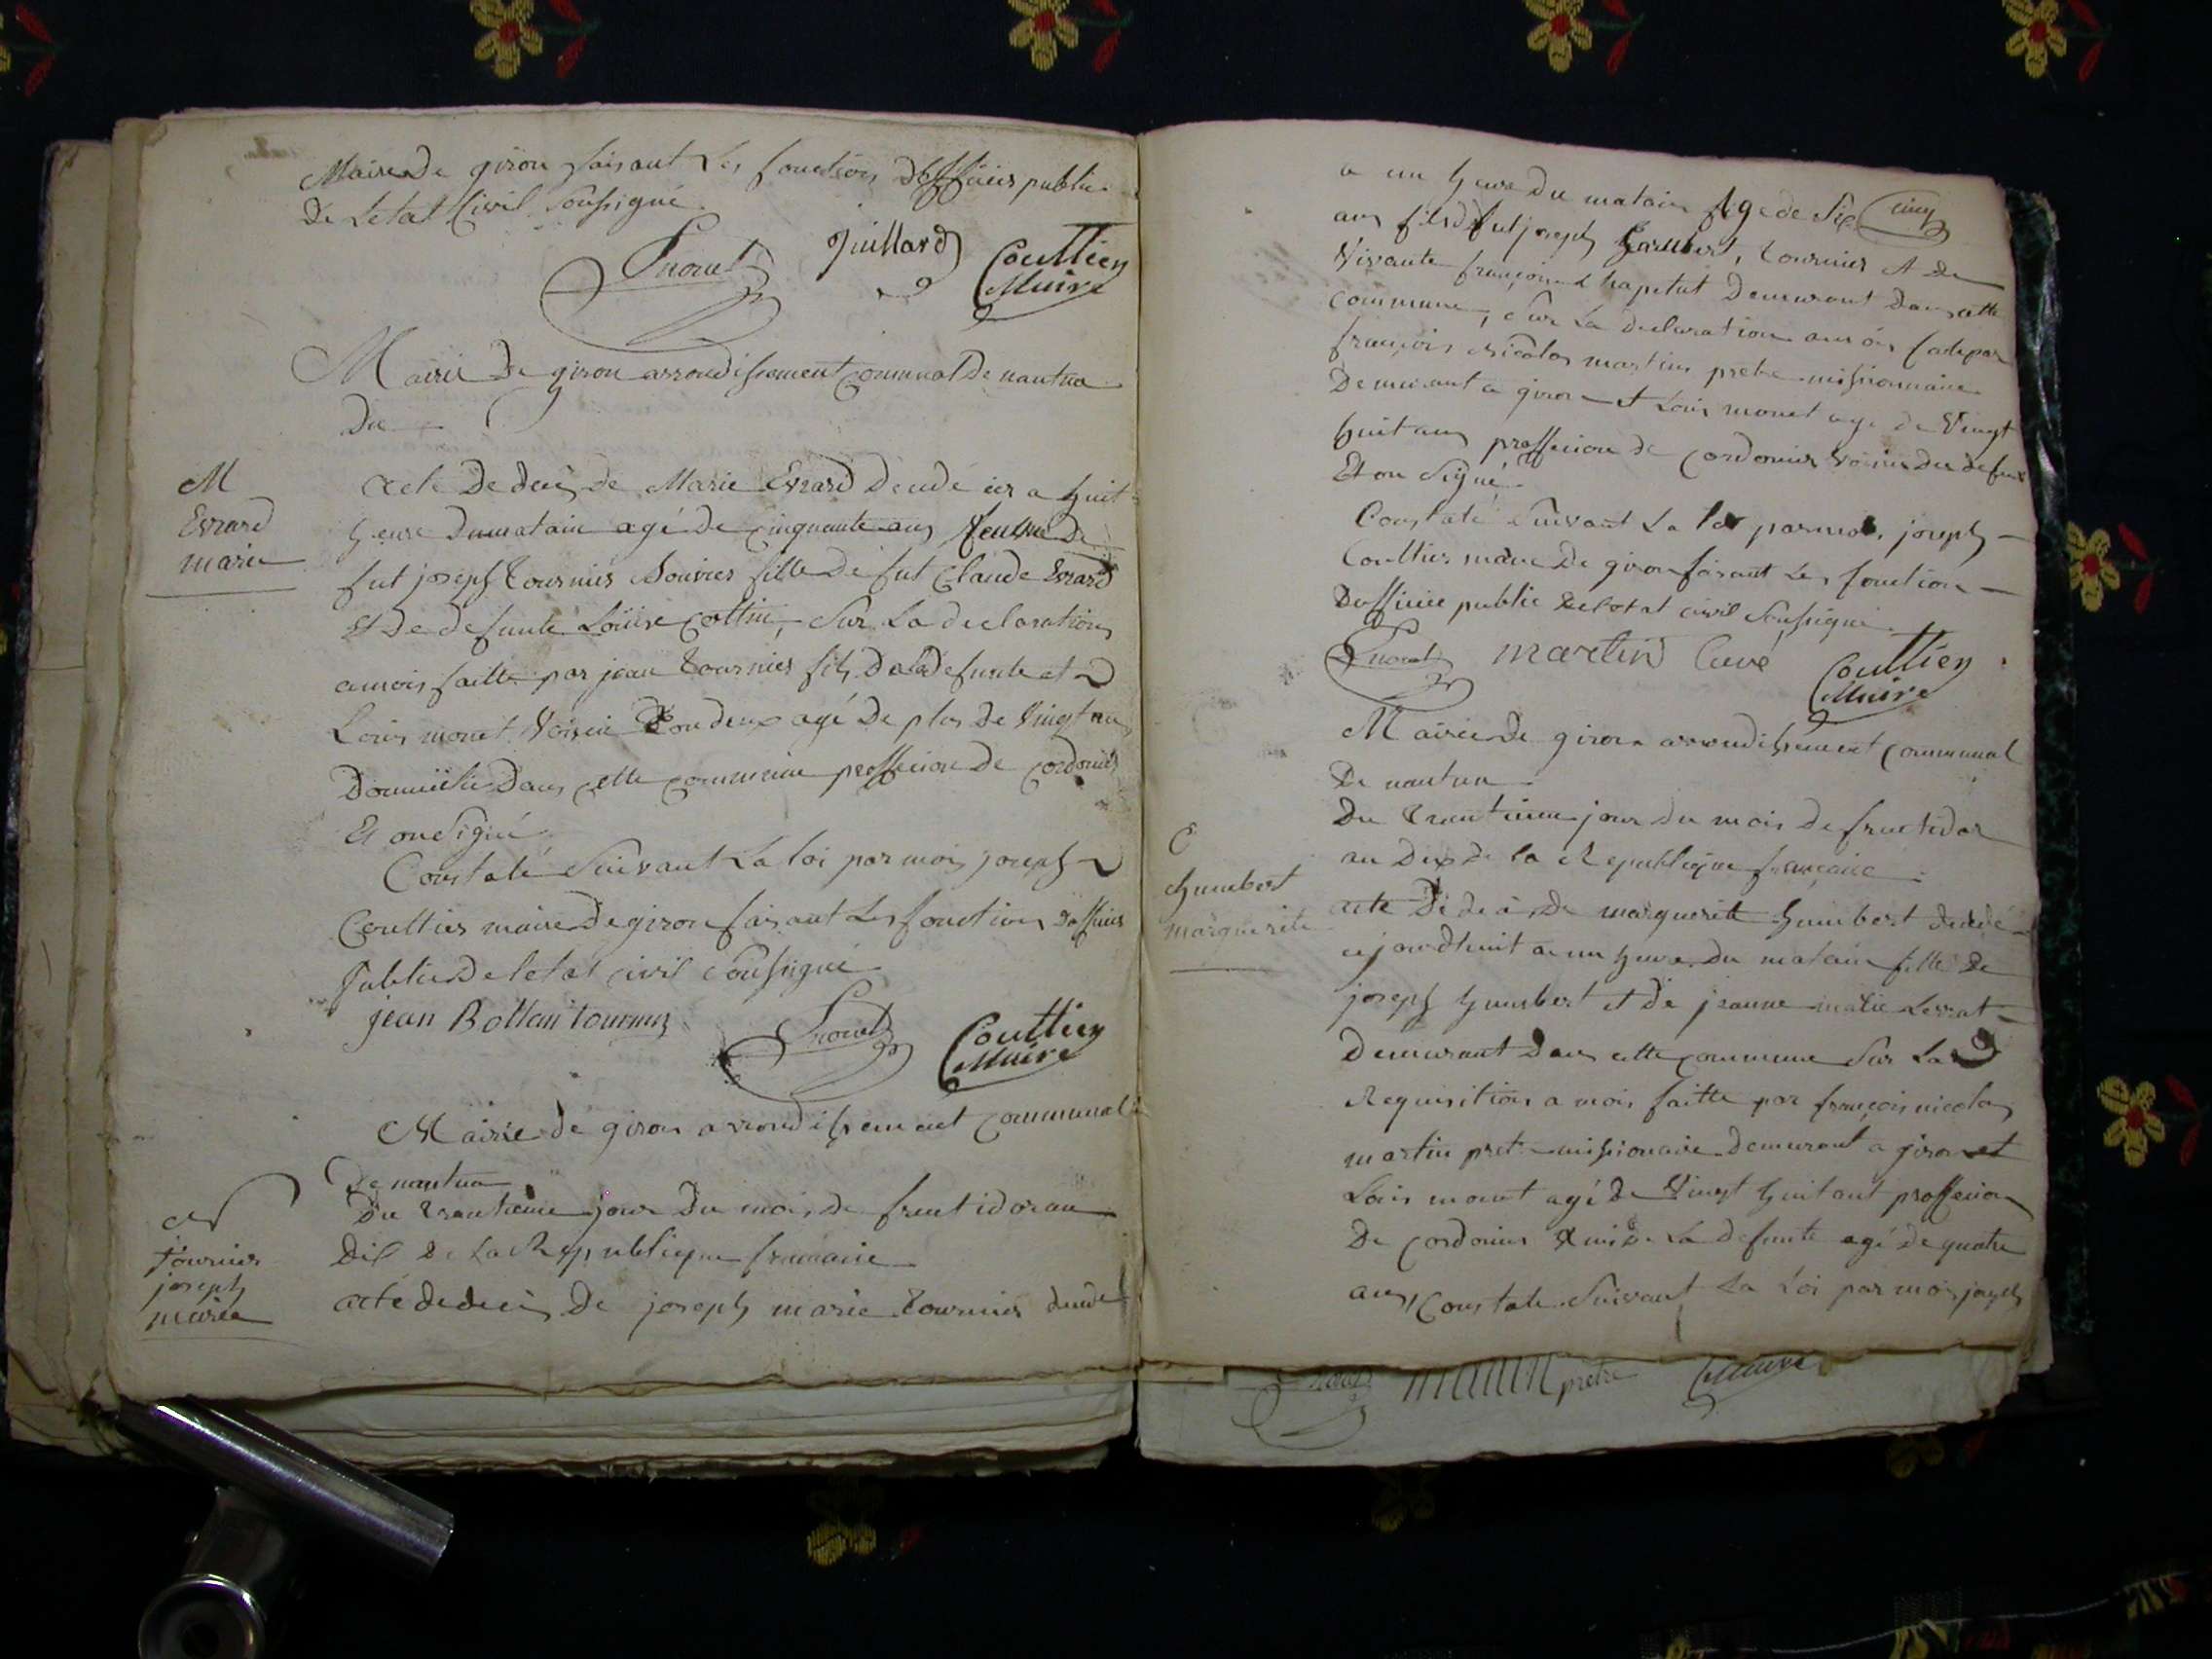 Mairie De giron faisant Les fonctions Dofficiers public
De Letat Civil Soussigné
Lmonet Juillard Coultier
Maire
Mairie De giron arrondissement Communal De nantua
Du
M
Evrard
marie
acte De deces de Marie Evrard Decedé ier a huit
heure Dumatain agé De Cinquante ans
fut joseph tournier fille De fut Claude Evrard
Et De defunte Louise Cottin, Sur La declaration
amois faitte par jean tournier fils De la Defunte et
Louis monet Voisin Tou deux agé De plus De Vingt un
Domicilié Dans Cette Commune proffecion De Cordonier
Et on Signé
Constaté Suivant La loi par moi joseph
Coultier maire De giron faisant Les fonctions Dofficier
Public De letat civil Soussigné
jean Bollan tournier Lmonet Coultier
Maire
Mairie De giron arrondissement Communal
De nantua
Du trantieme jour Du mois De fructidor an
Dix De La Republique francaise
tournier
joseph
marie
acte de deces De joseph marie tournier decede
a un heure Du matain Age de Six cinq
ans fils De fut joseph tournier Et De
Vivante françoise Demeurant Dans cette
commune, Sur La declaration a mois faite par
françois nicolas martin pretre missionnaire
Demeurant a giron et Louis monet age De Vingt
huit ans proffecion De Cordonier Voisin du defunt
Et on Signé
Constaté Suivant La loi par moi joseph
Coultier maire De giron faisant Les fonction
Dofficier public De letat civil Soussigné
Lmonet martin Curé Coultier
Maire
Mairie De giron arrondissement Communal
De nantua
Du trantieme jour Du mois De fructidor
an Dix De la Republique francaise
humbert
marguerite
acte De deces De marguerite humbert decedé
cejourdhuit a un heure Du matain fille De
joseph humbert et De jeanne marie
Demeurant Dans cette commune Sur La
Requisition a mois faitte par françois nicolas
martin pret missionaire Demeurant a giron et
Louis monet agé De Vingt huit ant proffecion
De Cordonier La defunte agé De quatre
ans, Constaté Suivant La Loi par moi joseph
martin pretre Maire